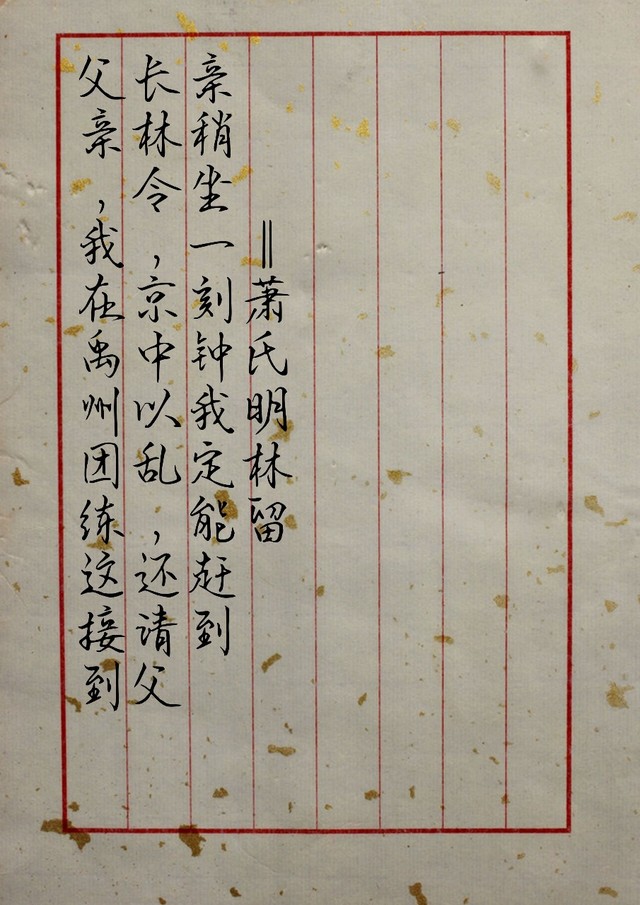 父亲，我在禹州团练这接到
长林令，京中以乱，还请父
亲稍坐一刻钟我定能赶到
‖萧氏明林留